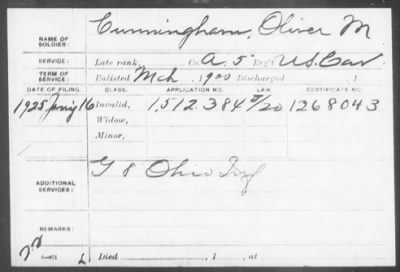 NAME OF SOLDIER: Cunningham, Oliver M
SERVICE: Late rank, Co. A, 5" Reg't U.S. Cav.
TERM OF SERVICE: Enlisted Mch , 1900 Discharged , 1
DATE OF FILING. CLASS. APPLICATION NO. LAW. CERTIFICATE NO.
1925 16 Invalid, 1,512,384 1268043
Widow,
Minor,
ADDITIONAL SERVICES: G 8 Ohio Inf
REMARKS:
Died , 1 , at